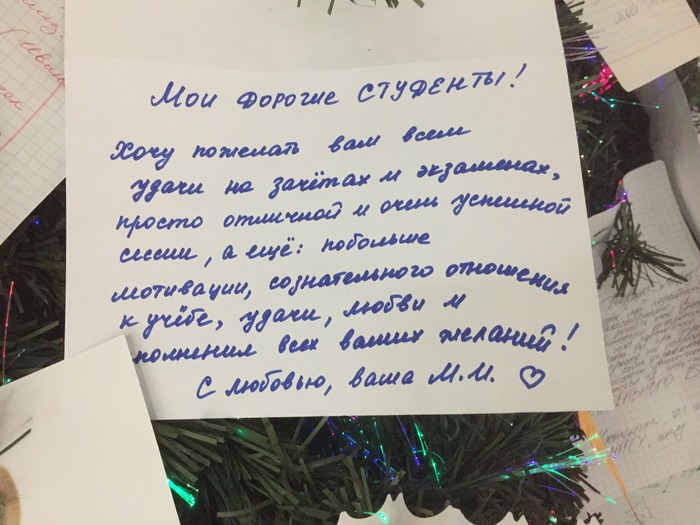 Мои дорогие СТУДЕНТЫ!
Хочу пожелать вам всем
удачи на зачётах и экзаменах,
просто отличной и очень успешной
сессии, а ещё: побольше
мотивации, сознательного отношения
к учёбе, удачи, любви и
полнения всех ваших желаний!
С любовью, ваша М.М. ♡